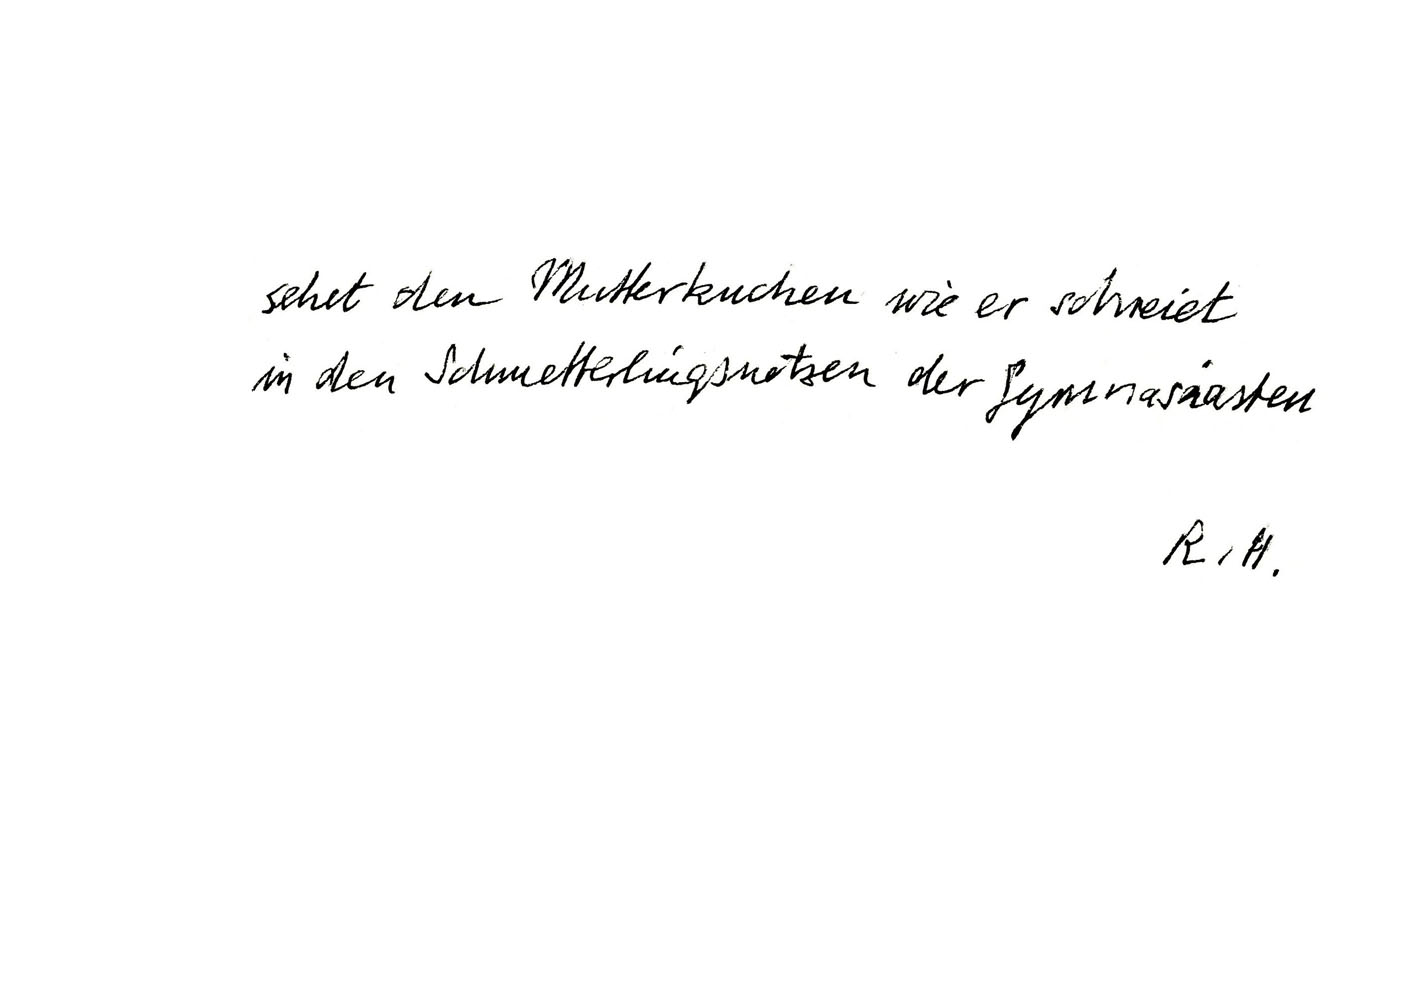 sehet den Mutterkuchen wie er schreiet
in den Schmetterlingsnetzen der Gymnasiasten
R. H.